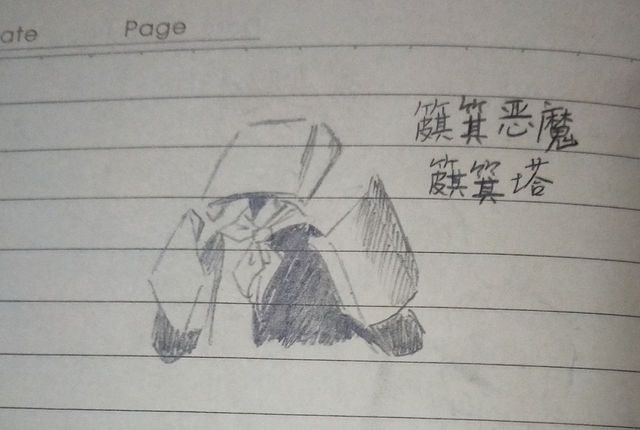 ate Page
簸箕恶魔
簸箕塔